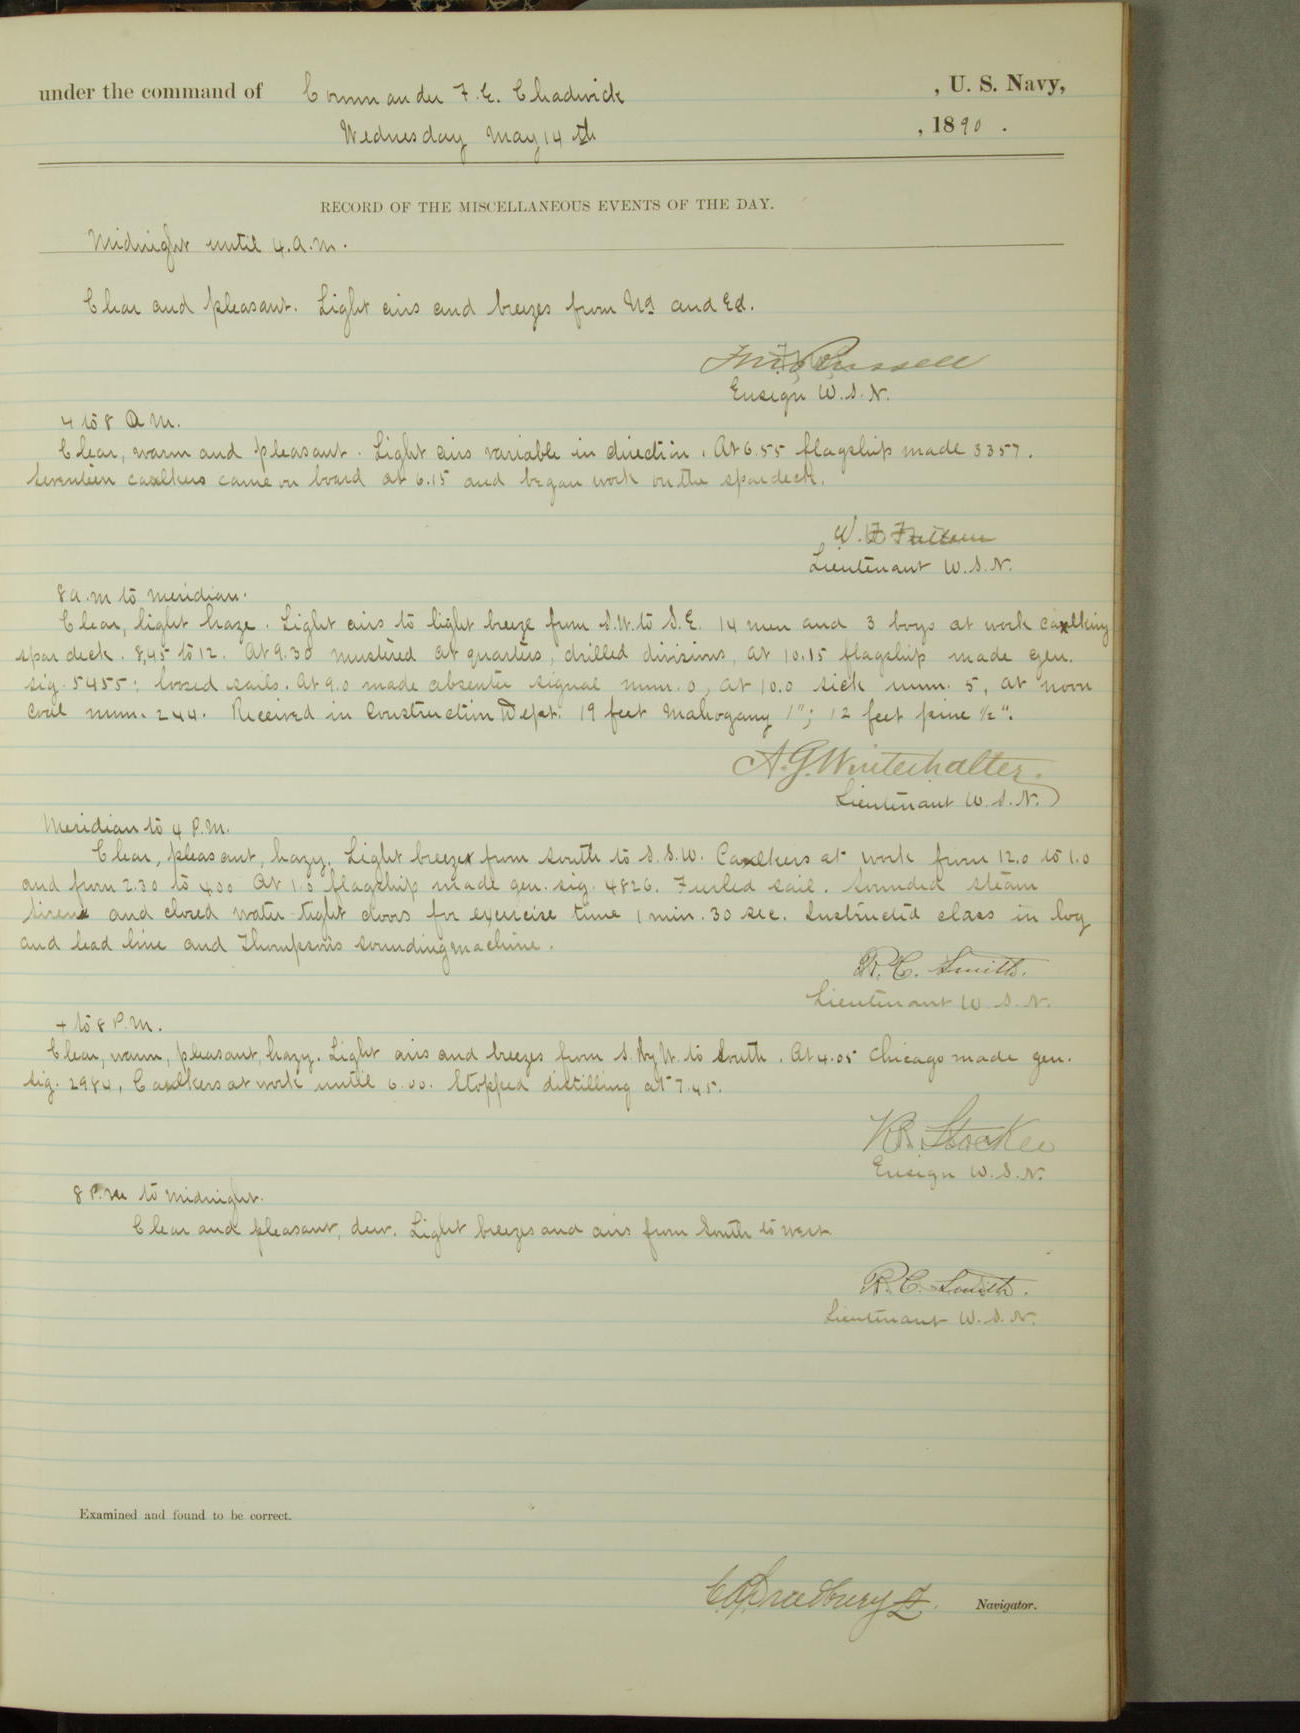 under the command of Commander F. E. Chadwick, U. S. Navy,
Wednesday May 14th, 1890.
RECORD OF THE MISCELLANEOUS EVENTS OF THE DAY.
Midnight until 4. a.m.
Clear and pleasant. Light airs and breezes from Nd and Ed.
Russell
Ensign U.S.N.
4 to 8 A.M.
Clear, warm and pleasant. Light airs variable in direction. At 6.55 flagship made 3357.
Seventeen caulkers came on board at 6.15 and began work on the spar deck.
W. F. Fullam
Lieutenant U.S.N.
8 a.m to meridian.
Clear, light haze. Light airs to light breeze from S.W. to S.E. 14 men and 3 boys at work caulking
spar deck. 8.45 to 12. At 9.30 mustered at quarters, drilled divisions, at 10.15 flagship made gen.
sig. 5455: loosed sails. At 9.0 made absentee signal num. 0, at 10.0 sick num. 5, at noon
coal num. 244. Received in Construction Dept: 19 feet Mahogany 1"; 12 feet pine ½".
A. G. Winterhalter.
Lieutenant U.S.N.
Meridian to 4 P.M.
Clear, pleasant, hazy. Light breeze from South to S.S.W. Caulkers at work from 12.0 to 1.0
and from 2.30 to 4.00 At 1.0 flagship made gen. sig. 4826. Furled sail. Sounded steam
siren and closed water-tight doors for exercise time 1 min. 30 sec. Instructed class in log
and lead line and Thompson's sounding machine.
R. C. Smith.
Lieutenant U.S.N.
4 to 8 P.M.
Clear, warm, pleasant, hazy. Light airs and breezes from S. by W. to South. At 4.05 Chicago made gen.
sig. 2984, Caulkers at work until 6.00. Stopped distilling at 7.45.
R. Stocker
Ensign U.S.N.
8 P.M to Midnight.
Clear and pleasant, dew. Light breezes and airs from South to West
R. C. Smith.
Lieutenant U.S.N.
Examined and found to be correct.
Bradbury Lt. Navigator.